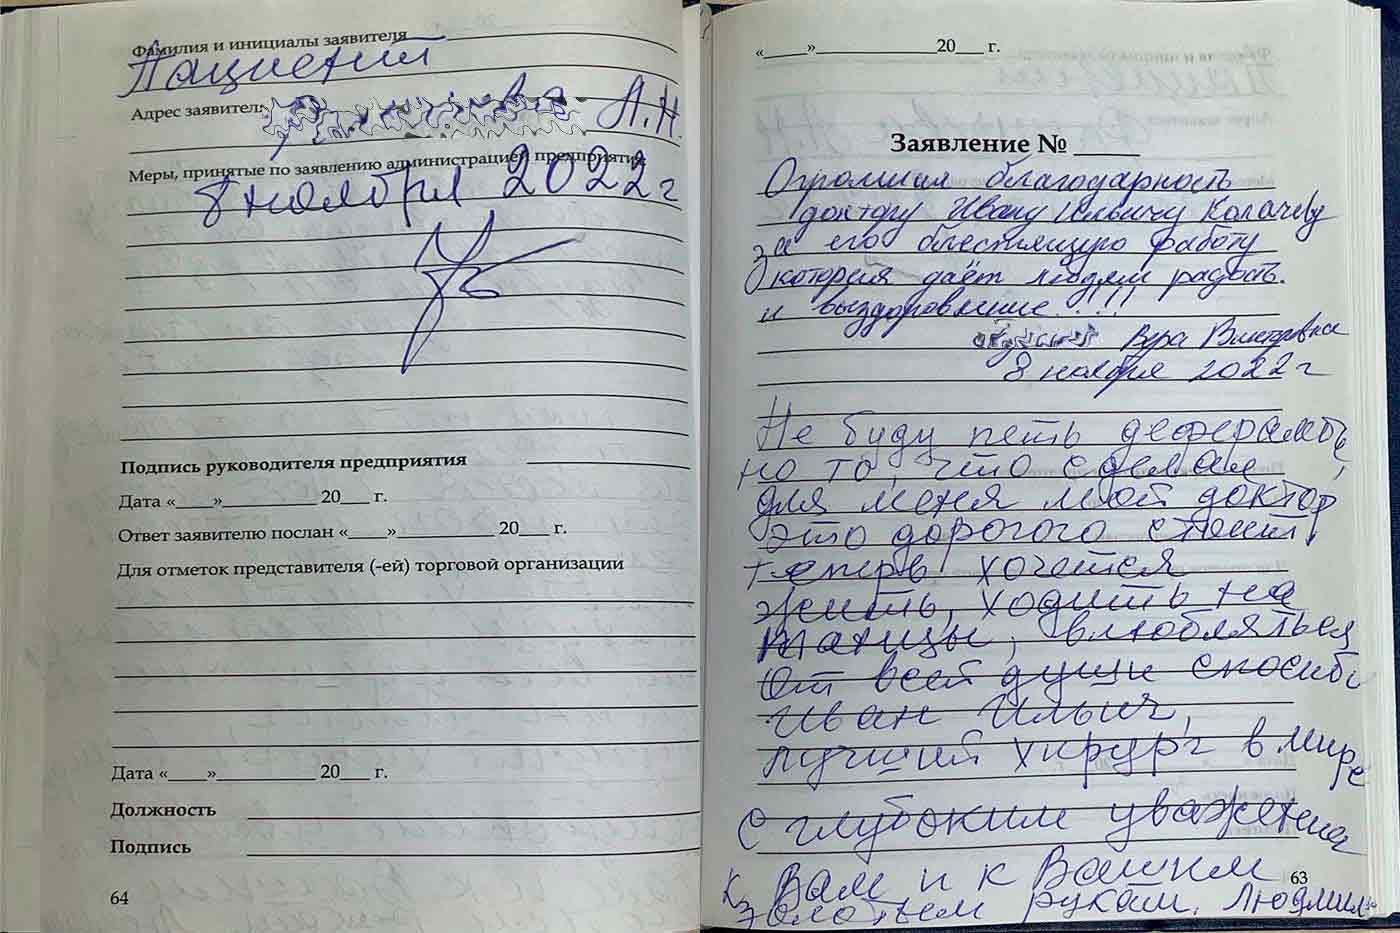 Фамилия и инициалы заявителя
Пациентка
Адрес заявителя
А.Н.
Меры, принятые по заявлению администрацией предприятия
8 ноября 2022 г
Подпись руководителя предприятия
Дата «____»__________ 20___ г.
Ответ заявителю послан «____»__________ 20___ г.
Для отметок представителя (-ей) торговой организации
Дата «____»__________ 20___ г.
Должность
Подпись
64
«_____»_____________ 20___ г.
Заявление № _____
Огромная благодарность
доктору Ивану Ильичу Калачеву
за его блестящую работу
которая даёт людям радость.
и выздоровление!!!!
Вера Викторовна
8 ноября 2022 г
Не буду петь деферамбы,
но то, что сделал
для меня мой доктор,
это дорогого стоит,
теперь хочется
жить, ходить на
танцы, влюбляться
От всей души спасибо
Иван Ильич,
лучший хирург в мире
С глубоким уважением
к Вам и к Вашим
золотым рукам. Людмила
63